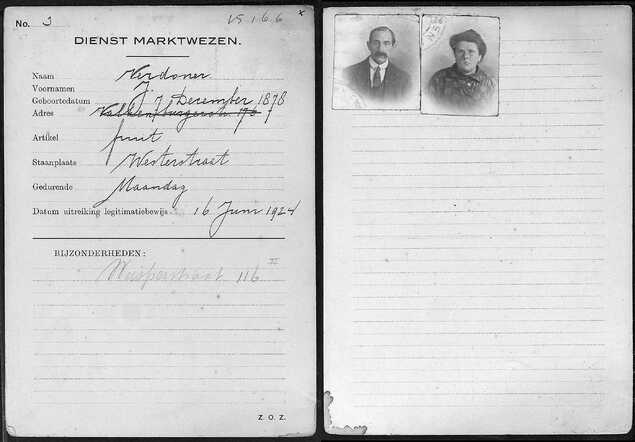 No. 3
VS 166 x
DIENST MARKTWEZEN.
Naam Verdoner
Voornamen J.
Geboortedatum 7 December 1878
Adres Valkenburgerstr.
Artikel fruit
Staanplaats Westerstraat
Gedurende Maandag
Datum uitreiking legitimatiebewijs 16 Juni 1924
BIJZONDERHEDEN:
Weesperstraat 116 II
Z. O. Z.